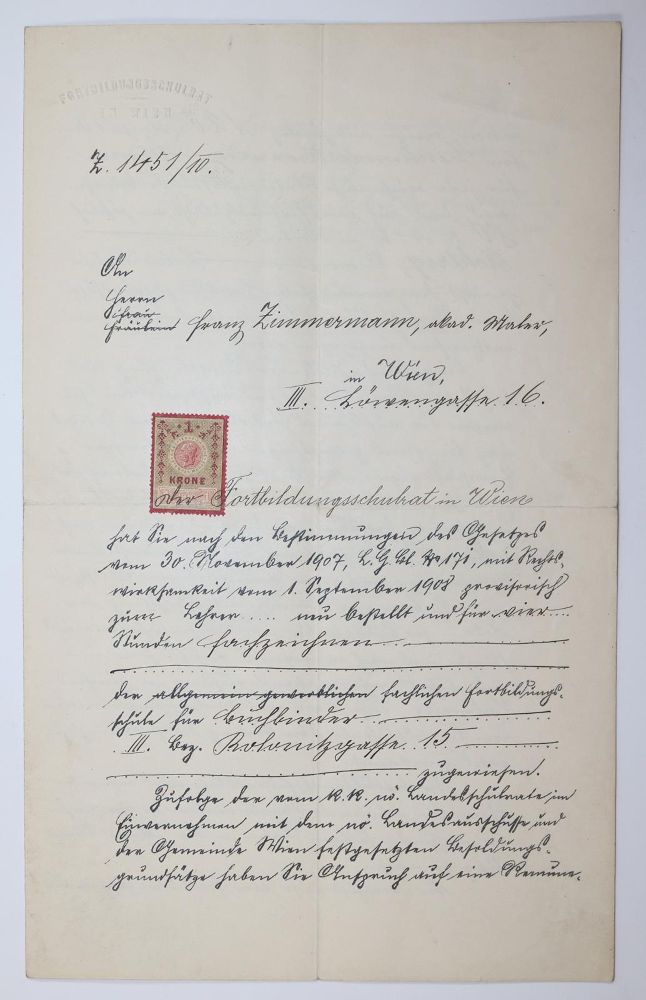 Z. 1451/10.
An
Herrn
Frau
Fräulein Franz Zimmermann, akad. Maler,
in Wien,
III. Löwengasse 16.
1
KRONE
Der Fortbildungsschulrat in Wien
hat Sie nach den Bestimmungen des Gesetzes
vom 30. November 1907, L. G. Bl. No 171, mit Rechts-
wirksamkeit vom 1. September 1908 provisorisch
zum Lehrer ..... neu bestellt und für vier ....
Stunden Fachzeichnen
der allgemein gewerblichen fachlichen Fortbildungs-
schule für Buchbinder
III. Bez. Kolonitzgasse 15
zugewiesen.
Zufolge der vom k. k. nö. Landesschulrate im
Einvernehmen mit dem nö. Landesausschusse und
der Gemeinde Wien festgesetzten Besoldungs-
grundsätze haben Sie Anspruch auf eine Remune-